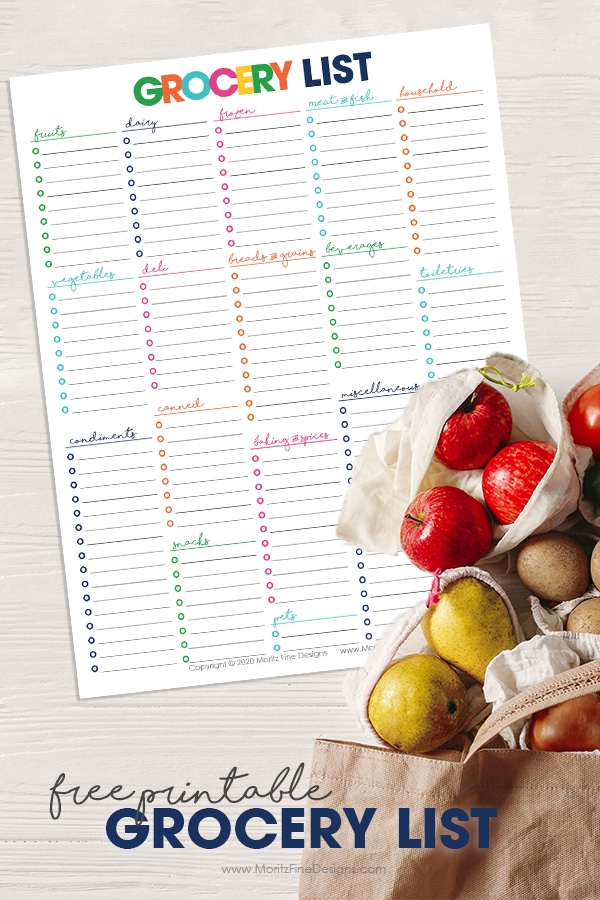 GROCERY LIST
fruits
dairy
frozen
meat & fish
household
vegetables
deli
breads & grains
beverages
toiletries
condiments
canned
baking & spices
miscellaneous
snacks
pets
Copyright © 2020 Moritz Fine Designs
free printable
GROCERY LIST
www.MoritzFineDesigns.com